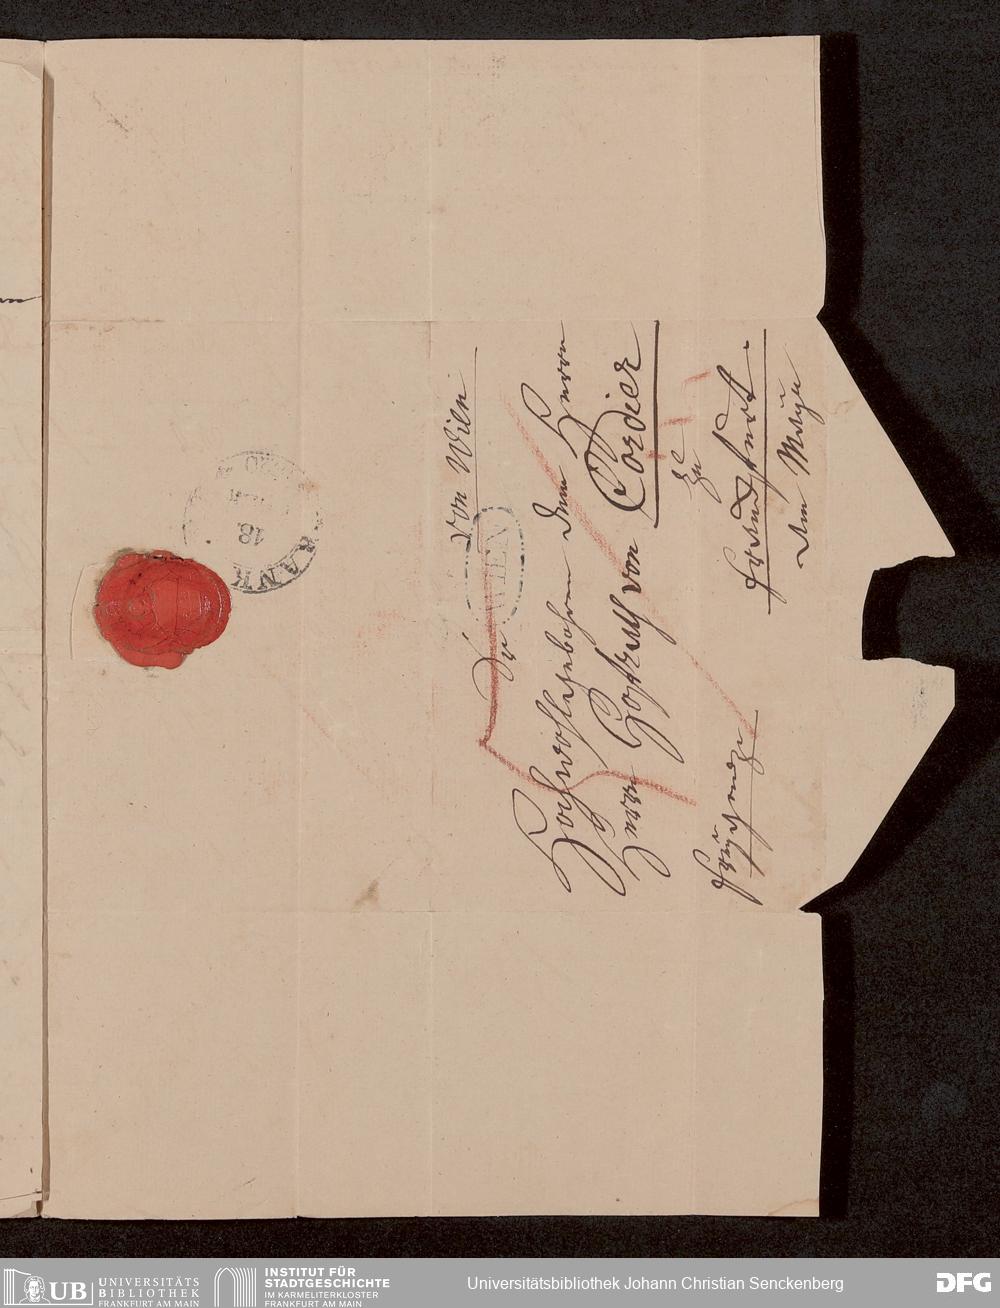 von Wien
WIEN
Sr
Hochwohlgebohren dem Herrn
Herrn Hofrath von Cordier
zu
Franckfurt.
am Mayn
FRANK
18
UB
UNIVERSITÄTS
BIBLIOTHEK
FRANKFURT AM MAIN
INSTITUT FÜR
STADTGESCHICHTE
IM KARMELITERKLOSTER
FRANKFURT AM MAIN
Universitätsbibliothek Johann Christian Senckenberg
DFG